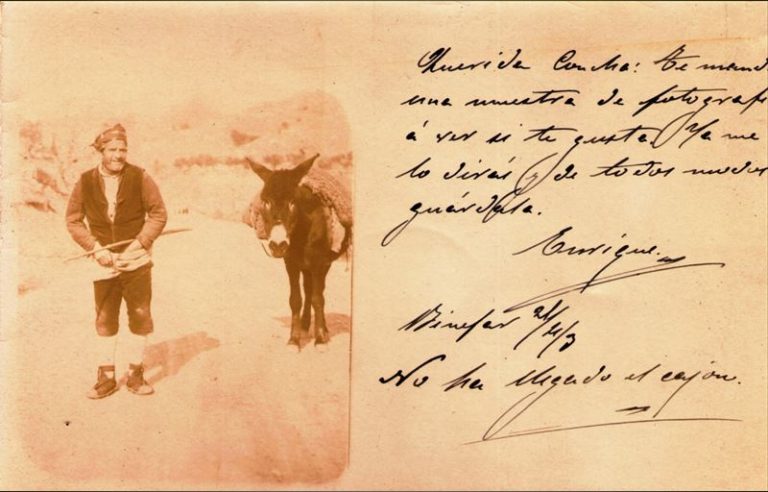 Querida Concha: te mand
una muestra de fotografi
á ver si te gusta. Ya me
lo dirás y de todos modos
guárdala.
Enrique.
Binefar
No ha llegado el cajón.